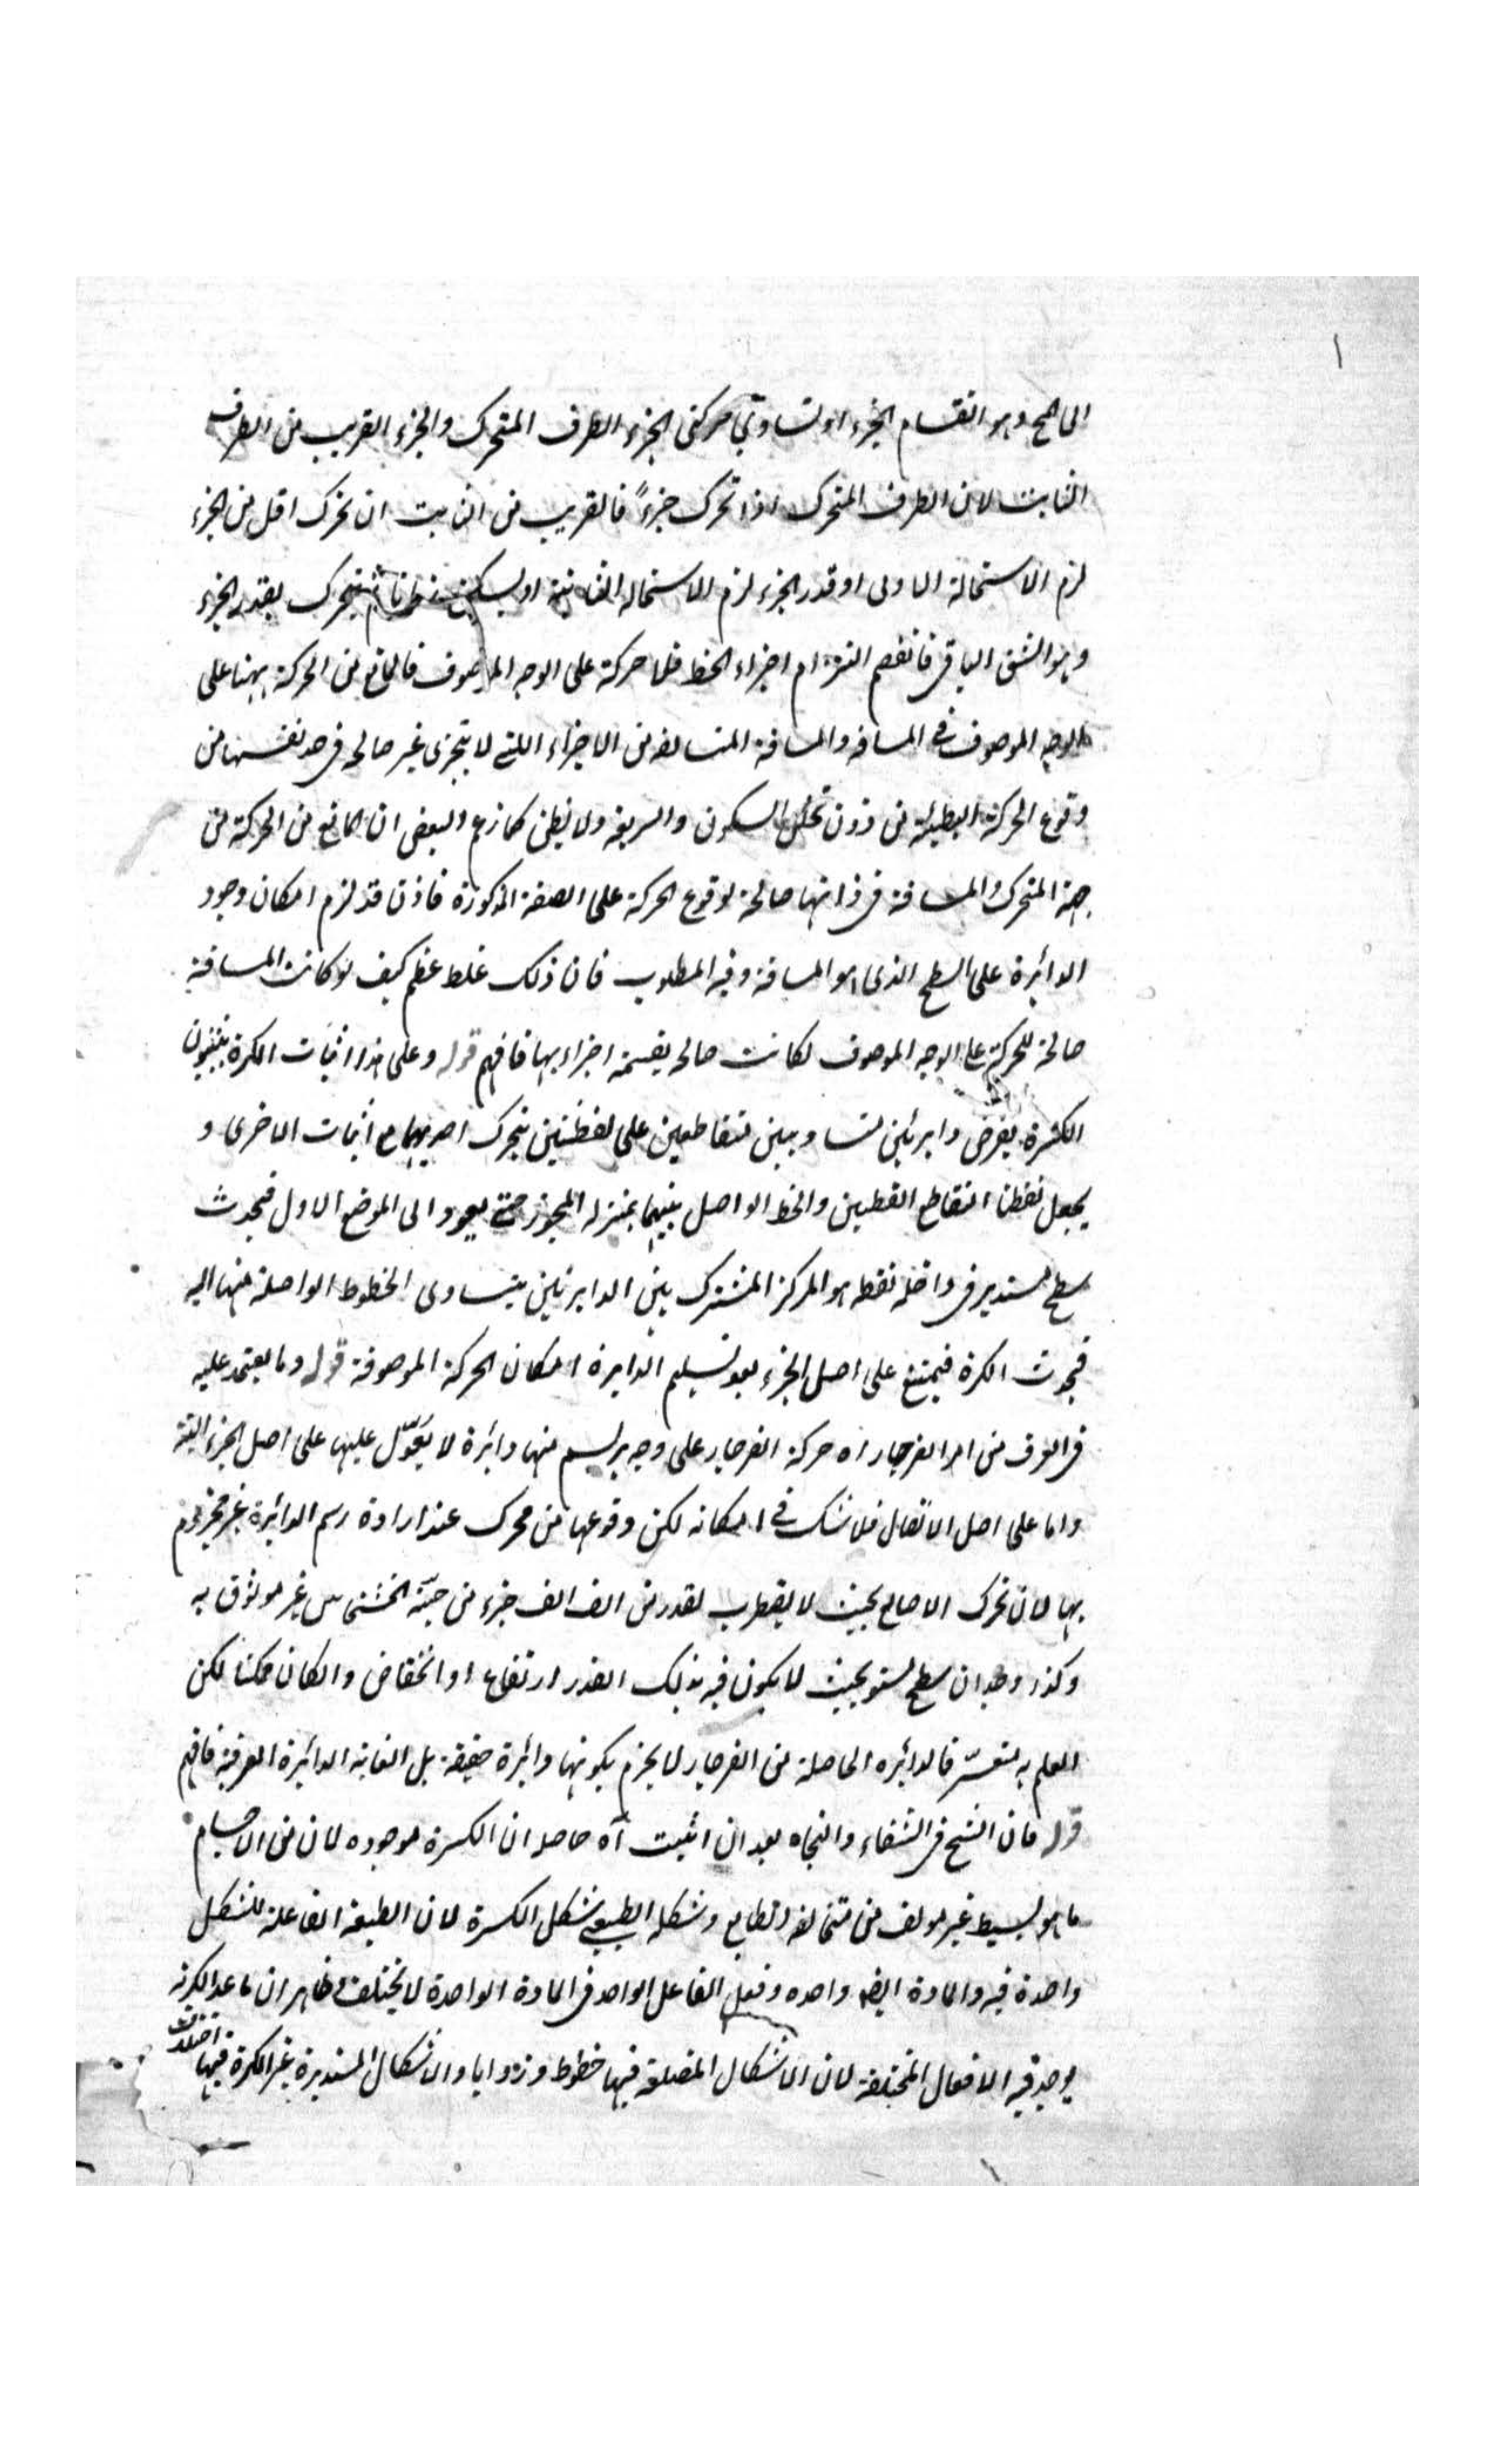 ١
الى المح وهو انقسام الجزء او تساوي حركتى الجزء الطرف المتحرك والجزء القريب من الطرف
الثابت لان الطرف المتحرك اذا تحرك جزءً فالقريب من الثابت ان تحرك اقل من الجزء
لزم الاستحالة الاولى او قدر الجزء لزم الاستحاله الثانية او يسكن زمانا ثم يتحرك بقدر الجزء
وهو الشق الباقى فانفصم التزام اجزاء الخط فلا حركة على الوجه الموصوف فالمانع من الحركة ههنا على
الوجه الموصوف فى المسافه والمسافة المتالفه من الاجزاء اللتى لا يتجزى غير صالحه فى حد نفسها من
وقوع الحركة البطيئة من دون تخلل السكون والسريعة ولا يظن كما زعم البعض ان المانع من الحركة من
جهة المتحرك والمسافة فى ذاتها صالحة لوقوع الحركة على الصفة المذكورة فاذن قد لزم امكان وجود
الدائرة على السطح الذى هو المسافة وفيه المطلوب فان ذلك غلط عظيم كيف لو كانت المسافة
صالحة للحركة على الوجه الموصوف لكانت صالحه بقسمة اجزاءها فافهم قوله وعلى هذا اثبات الكرة
الكثرة بفرض دايرتين متساويتين متقاطعين على نقطتين يتحرك احديهما مع اثبات الاخرى و
يجعل نقطتا التقاطع القطبين والخط الواصل بينهما بمنزله المحور حتى يعود الى الموضع الاول فيحدث
سطح مستدير فى داخله نقطه هو المركز المشترك بين الدايرتين يتساوى الخطوط الواصلة منها اليه
فيحدث الكرة فيمتنع على اصل الجزء بعد تسليم الدايرة امكان الحركة الموصوفة قوله وما يعتمد عليه
فى العرف من امر الفرجار اه حركة الفرجار على وجه يرسم منها دائرة لا يعوّل عليها على اصل الجزء البتة
واما على اصل الاتصال فلا شك فى امكانه لكن وقوعها من محرك عند ارادة رسم الدائرة غير مجزوم
بها لان تحرك الاصابع بحيث لا يضطرب بقدر من الف الف جزء من حبّة الخشخاش غير موثوق به
وكذا وجدان سطح مستو بحيث لا يكون فيه بذلك القدر ارتفاع او انخفاض والكان ممكنا لكن
العلم به متعسّر فالدائره الحاصلة من الفرجار لا يجزم بكونها دائرة حقيقة بل الغاية الدائرة العرفية فافهم
قوله فان الشيخ فى الشفاء والنجاه بعد ان اثبت آه حاصله ان الكرة موجوده لان من الاجسام
ما هو بسيط غير مولف من متخالفه الطابع وشكله الطبيعى شكل الكرة لان الطبيعة الفاعلة للشكل
واحدة فيه والمادة ايضه واحده وفعل الفاعل الواحد فى المادة الواحدة لا يختلف وظاهر ان ما عدا الكرية
يوجد فيه الافعال المختلفة لان الاشكال المضلعة فيها خطوط وزوايا والاشكال المستديرة غير الكرة فيها اختلاف